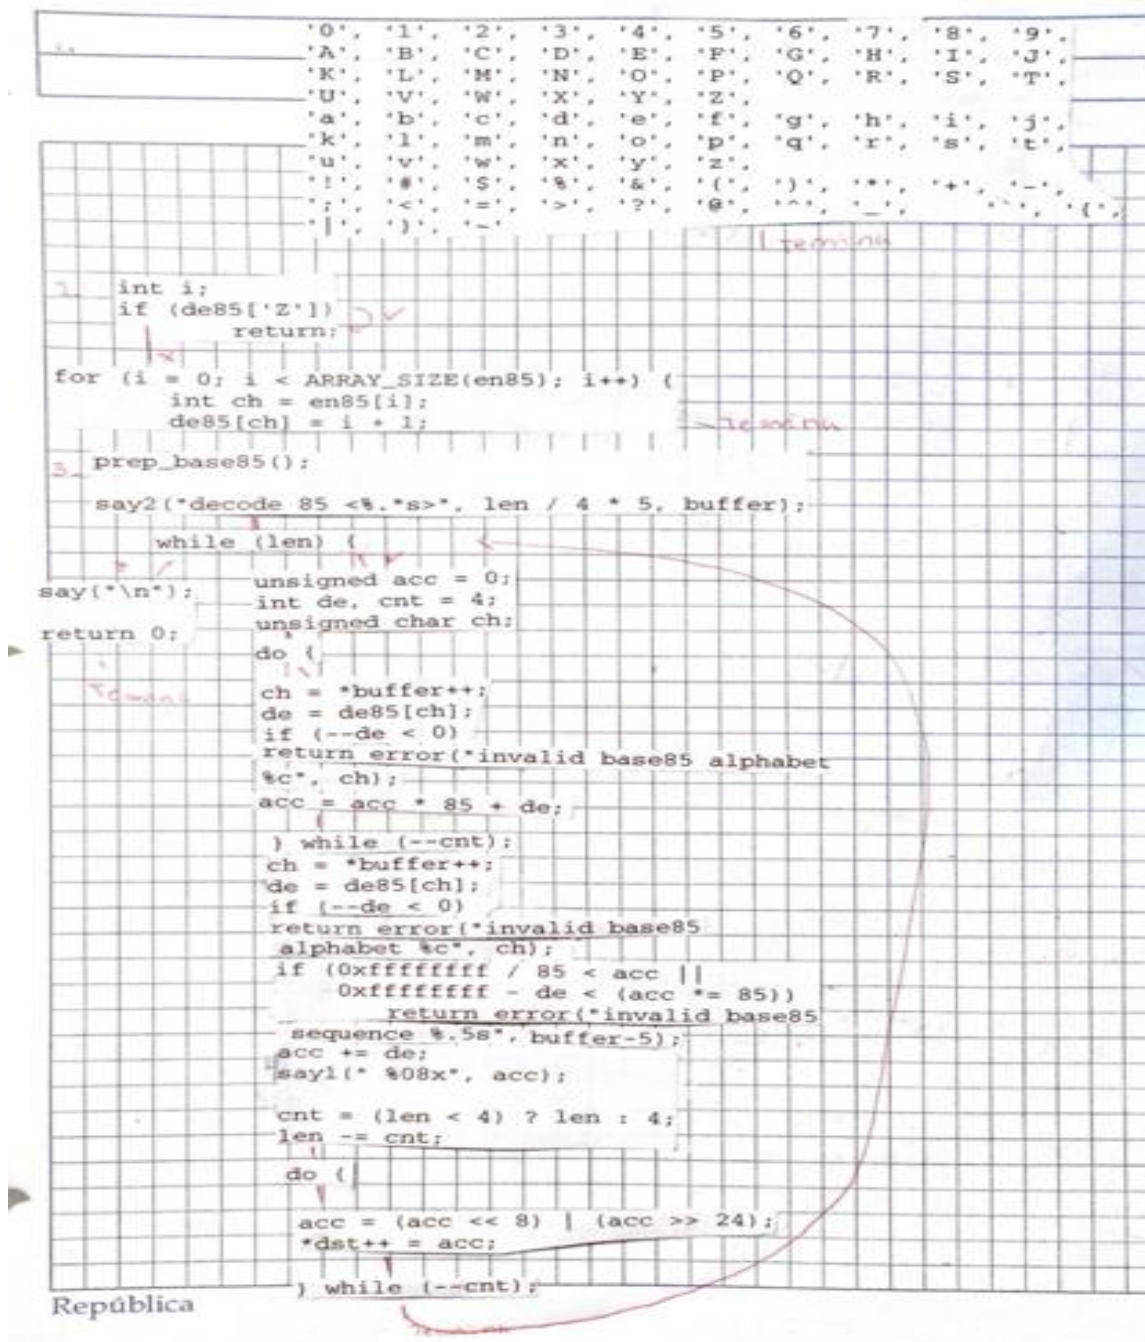 '0', '1', '2', '3', '4', '5', '6', '7', '8', '9',
'A', 'B', 'C', 'D', 'E', 'F', 'G', 'H', 'I', 'J',
'K', 'L', 'M', 'N', 'O', 'P', 'Q', 'R', 'S', 'T',
'U', 'V', 'W', 'X', 'Y', 'Z',
'a', 'b', 'c', 'd', 'e', 'f', 'g', 'h', 'i', 'j',
'k', 'l', 'm', 'n', 'o', 'p', 'q', 'r', 's', 't',
'u', 'v', 'w', 'x', 'y', 'z',
'!', '#', '$', '%', '&', '(', ')', '*', '+', '-',
';', '<', '=', '>', '?', '@', '^', '_', '`', '{',
'|', '}', '~'
Termina
2.
int i;
if (de85['Z'])
return;
for (i = 0; i < ARRAY_SIZE(en85); i++) {
int ch = en85[i];
de85[ch] = i + 1;
Termina
3.
prep_base85();
say2("decode 85 <%.*s>", len / 4 * 5, buffer);
while (len) {
say("\n");
return 0;
Termina
unsigned acc = 0;
int de, cnt = 4;
unsigned char ch;
do {
ch = *buffer++;
de = de85[ch];
if (--de < 0)
return error("invalid base85 alphabet
%c", ch);
acc = acc * 85 + de;
} while (--cnt);
ch = *buffer++;
de = de85[ch];
if (--de < 0)
return error("invalid base85
alphabet %c", ch);
if (0xffffffff / 85 < acc ||
0xffffffff - de < (acc *= 85))
return error("invalid base85
sequence %.5s", buffer-5);
acc += de;
say1(" %08x", acc);
cnt = (len < 4) ? len : 4;
len -= cnt;
do {
acc = (acc << 8) | (acc >> 24);
*dst++ = acc;
} while (--cnt);
República
Termina